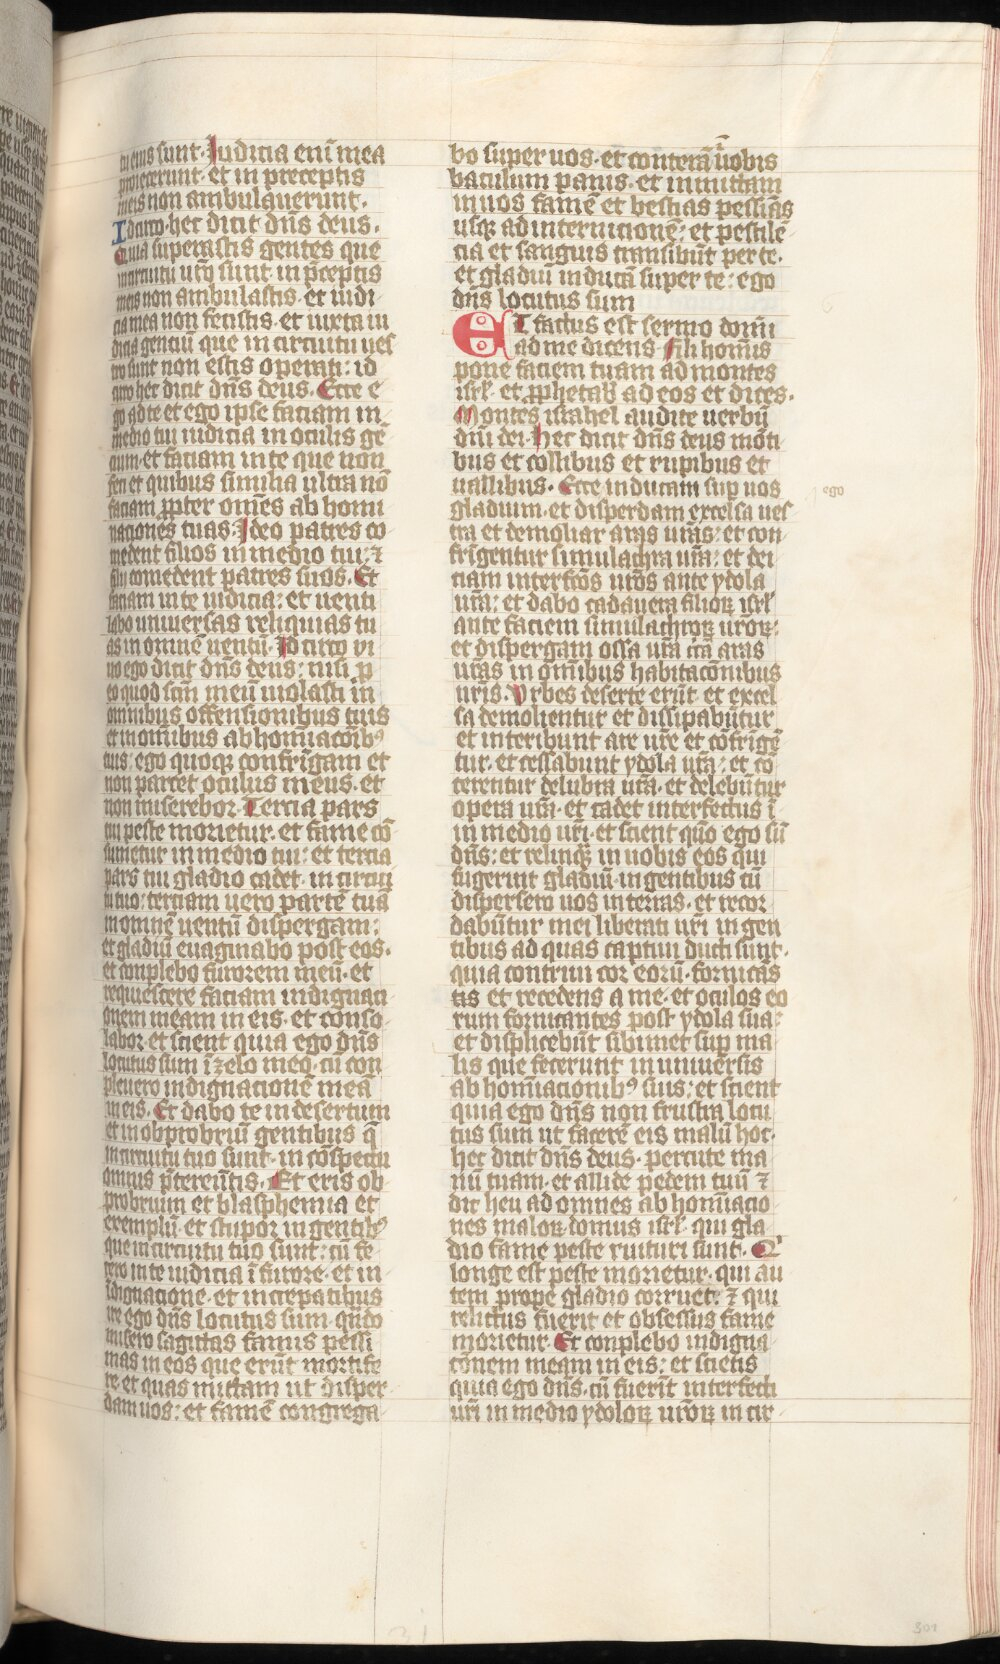 tu eius sunt. Iudicia eni̅ mea
proiecerunt. et in preceptis
meis non ambulauerunt.
Idcirco. hec dicit dn̅s deus.
Quia superastis gentes que
in circuitu ur̅o sunt. in p̅ceptis
meis non ambulastis. et iudi
cia mea non fecistis. et iuxta iu
dicia genciu̅ que in circuitu ues
tro sunt non estis operati: id
circo hec dicit dn̅s deus. Ecce e
go ad te et ego ipse faciam in
medio tui iudicia in oculis ge̅
cium. et faciam in te que non
feci et quibus similia ultra no̅
faciam. ꝓpter omne̅s abhomi
naciones tuas. Ideo patres co
medent filios in medio tui: ⁊
filii comedent patres suos. Et
faciam in te iudicia: et uenti
labo uniuersas reliquias tu
as in omne̅ uentu̅. Idcirco vi
uo ego dicit dn̅s deus: nisi p
eo quod sc̅m meu̅ uiolasti in
omnibus offensionibus tuis
et in omi̅bus abhominacio̅ibꝰ
tuis: ego quoqꝫ confri̅gam et
non parcet oculus meus. et
non miserebor. Tercia pars
tui peste morietur. et fame co̅
sumetur in medio tui: et tercia
pars tui gladio cadet. in circui
tu tuo: terciam uero parte̅ tua̅
in omne̅ uentu̅ dispergam:
et gladiu̅ euaginabo post eos.
et conplebo furorem meu̅. et
requiescere faciam indignaci
onem meam in eis. et conso
labor. et scient quia ego dn̅s
locutus sum i̅ zelo meo. cu̅ con
pleuero indignacione̅ mea̅
in eis. Et dabo te in desertum
et in obprobriu̅ gentibus q̅
in circuitu tuo sunt. in co̅spectu
omnis p̅tereu̅tis. Et eris ob
probrium et blasphemia et
exemplu̅. et stupor in gentibꝰ
que in circuitu tuo sunt: cu̅ fe
cero in te iudicia i̅ furore. et in
i̅dignacione. et in increpatibus
ire ego dn̅s locutus sum. qu̅do
misero sagittas famis pessi
mas in eos que eru̅t mortife
re. et quas mittam ut disper
dam uos: et fame̅ congrega
bo super uos. et contera̅ i̅ uobis
baculum panis. et inmittam
in uos fame̅ et bestias pessi̅as
usqꝫ ad internicione̅: et pestile̅
cia et sanguis transibu̅t per te.
et gladiu̅ inducam super te: ego
dn̅s locutus sum
ET factus est sermo domi̅
ad me dicens. Fili homi̅s
pone faciem tuam ad montes
isrl̅. et ꝓphetab̅ ad eos et dices.
Montes israhel audite uerbu̅
dn̅i dei. Hec dicit dn̅s deus mo̅ti
bus et collibus et rupibus et
uallibus. Ecce inducam sup uos
ego
gladium. et disperdam excelsa ues
tra et demoliar aras ur̅as: et con
fri̅gentur simulachra ur̅a: et dei
ciam interfc̅os ur̅os ante ydola
ur̅a: et dabo cadauera filioꝝ isrl̅
ante faciem simulachroꝝ ur̅oꝝ:
et dispergam ossa ur̅a circa aras
ur̅as in omi̅bus habitaco̅nibus
ur̅is. Vrbes deserte eru̅t et excel
sa demolientur et dissipabu̅tur
et interibunt are ur̅e et co̅fri̅ge̅
tur. et cessabunt ydola ur̅a: et co̅
terentur delubra ur̅a. et delebu̅tur
opera ur̅a. et cadet interfectus i̅
in medio ur̅i. et scient quo ego su̅
dn̅s: et relinqꝫ in uobis eos qui
fugerint gladiu̅ in gentibus cu̅
dispersero uos in terras. et recor
dabu̅tur mei liberati ur̅i in gen
tibus ad quas captiui ducti sunt.
quia contriui cor eoru̅. fornica̅s
tis et recedens a me. et oculos eo
rum fornicantes post ydola sua:
et displicebu̅t sibimet sup ma
lis que fecerunt in uniuersis
abhomi̅acionibꝰ suis: et scient
quia ego dn̅s non frustra locu
tus sum ut facere̅ eis malu̅ hoc.
hec dicit dn̅s deus. percute ma
nu̅ tuam. et allide pedem tuu̅ ⁊
dic heu ad omnes abhomi̅acio
nes maloꝝ domus isrl̅. qui gla
dio fame peste ruituri sunt. Qͥ
longe est peste morietur. qui au
tem prope gladio corruet: ⁊ qui
relictus fuerit et obsessus fame
morietur. Et conplebo indigna
co̅nem meam in eis: et scietis
quia ego dn̅s. cu̅ fueri̅t interfecti
ur̅i in medio ydoloꝝ ur̅oꝝ in cir
301